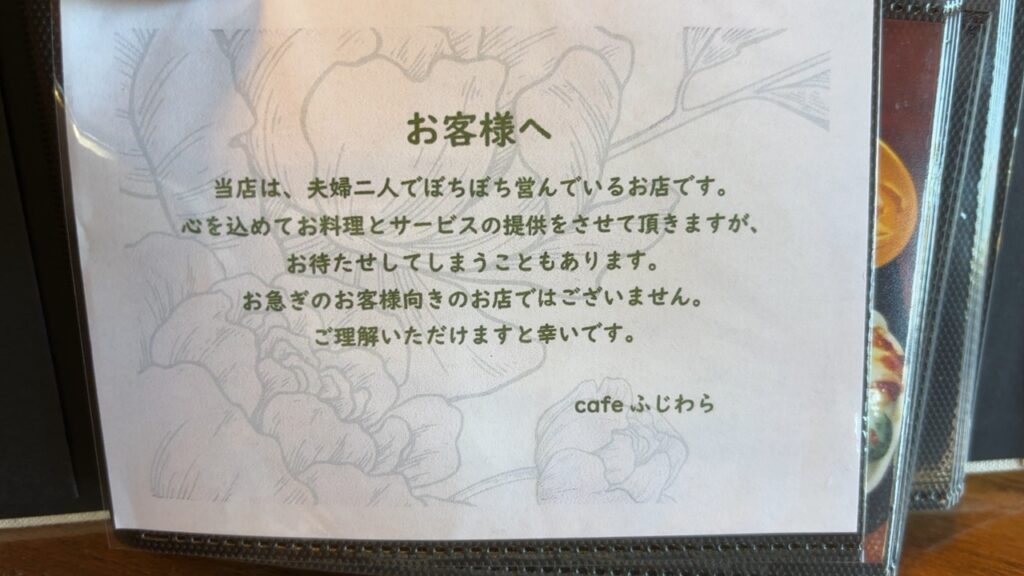 お客様へ
当店は、夫婦二人でぼちぼち営んでいるお店です。
心を込めてお料理とサービスの提供をさせて頂きますが、
お待たせしてしまうこともあります。
お急ぎのお客様向きのお店ではございません。
ご理解いただけますと幸いです。
cafe ふじわら